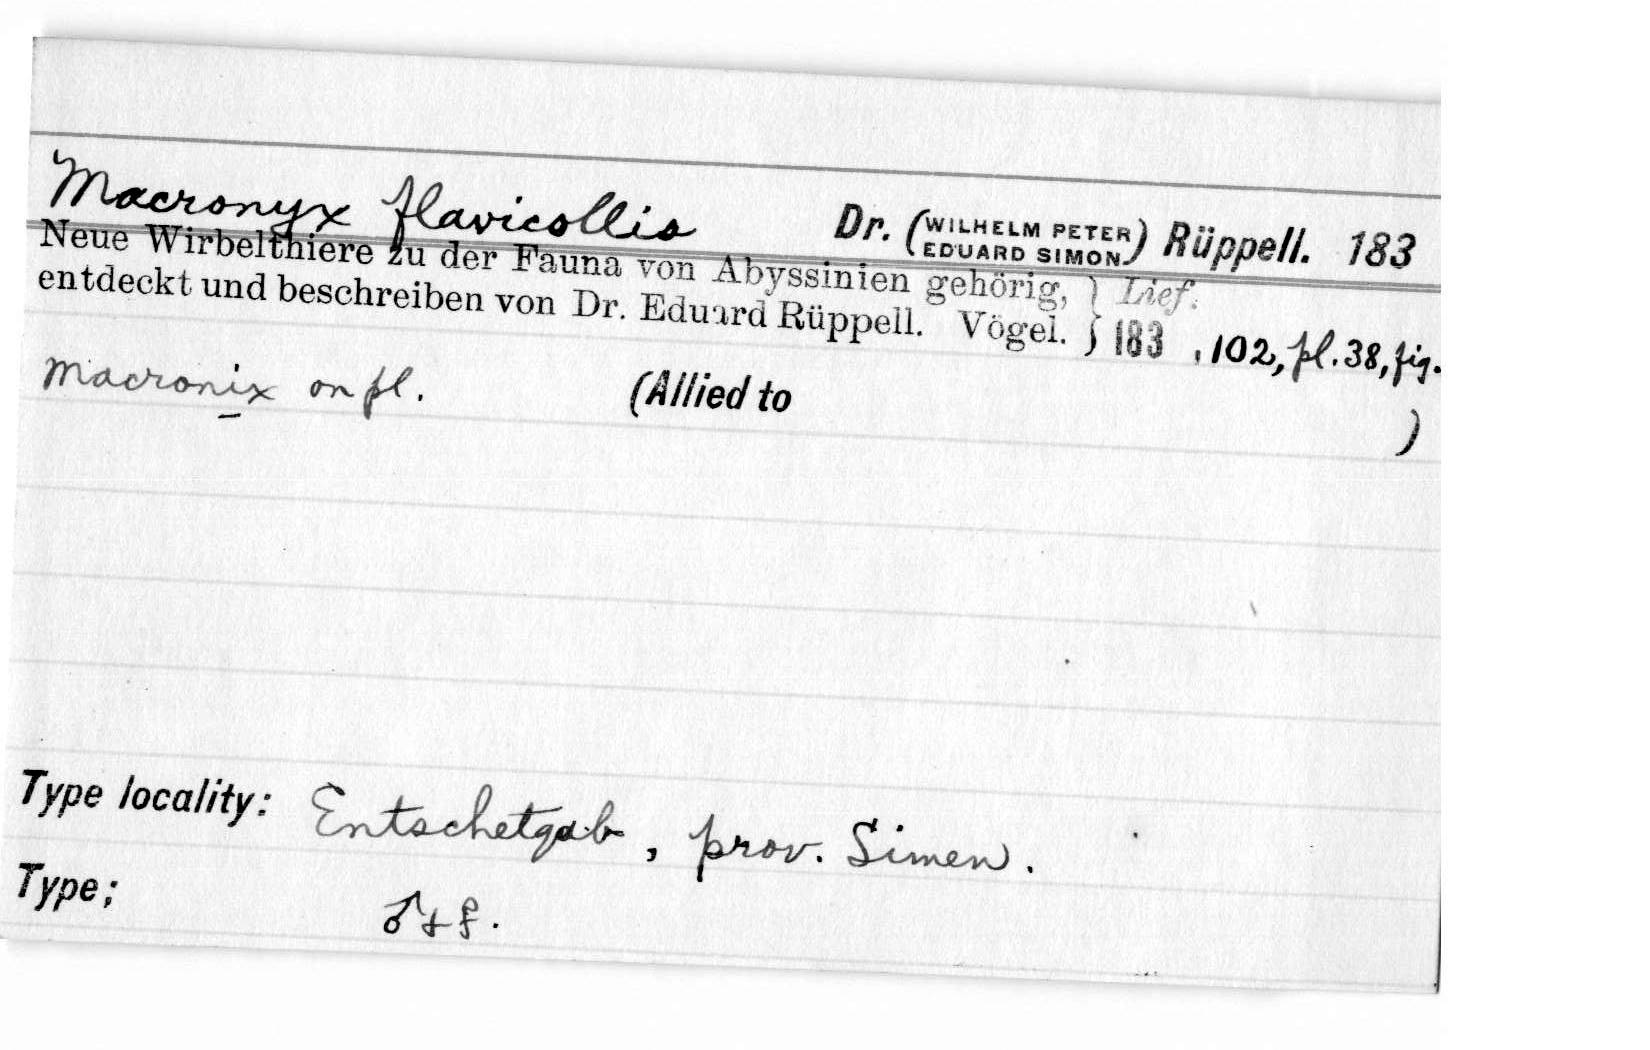 Macronyx flavicollis Dr. (WILHELM PETER EDUARD SIMON) Rüppell. 183
Neue Wirbelthiere zu der Fauna von Abyssinien gehörig, } Lief.
entdeckt und beschreiben von Dr. Eduard Rüppell. Vögel. } 183 , 102, pl. 38, fig.
Macronix on pl. (Allied to )
Type locality: Entschetqab, prov. Simen.
Type; ♂ + ♀.